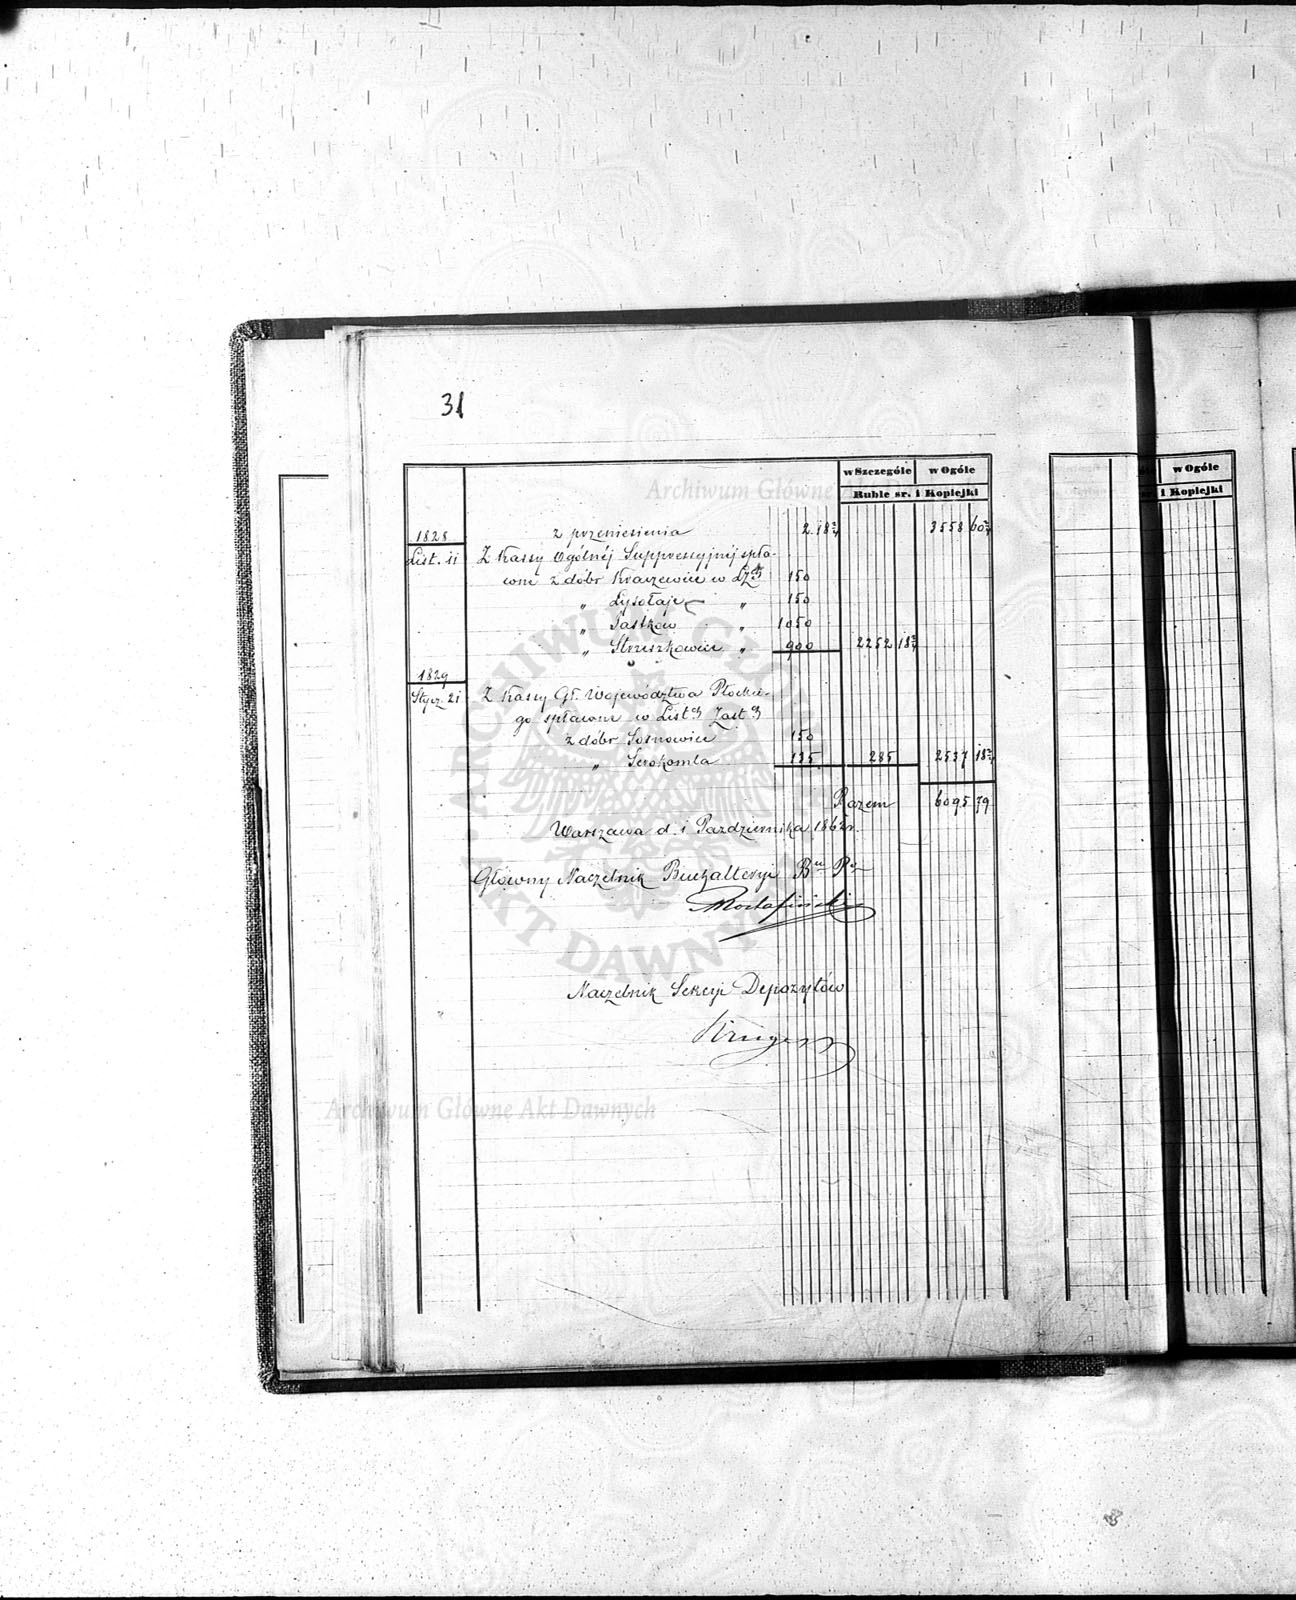 31
w Szczególe w Ogóle
Ruble sr. i Kopiejki
w Ogóle
i Kopiejki
z przeniesienia 2 18 3/4 3558 60 3/4
1828
List. 11 Z Kassy Ogólnéj Suppressyjnéj spła-
wne z dóbr Kraczewice w LZch 150
„ Łysołaje „ 150
„ Jastków „ 1050
„ Strzeszkowice „ 900 2252 18 3/4
1829
Stycz. 21 Z Kassy Gł. Województwa Płockie-
go spławne w Listch Zastch
z dóbr Sosnowice 150
„ Serokomla 135 285 2537 18 3/4
Razem 6095 79
Warszawa d. 1 Października 1862 r.
Główny Naczelnik Buchalteryi
Naczelnik Sekcyi Depozytów
Kruger
Archiwum Główne Akt Dawnych
ARCHIWUM GŁÓWNE AKT DAWNYCH